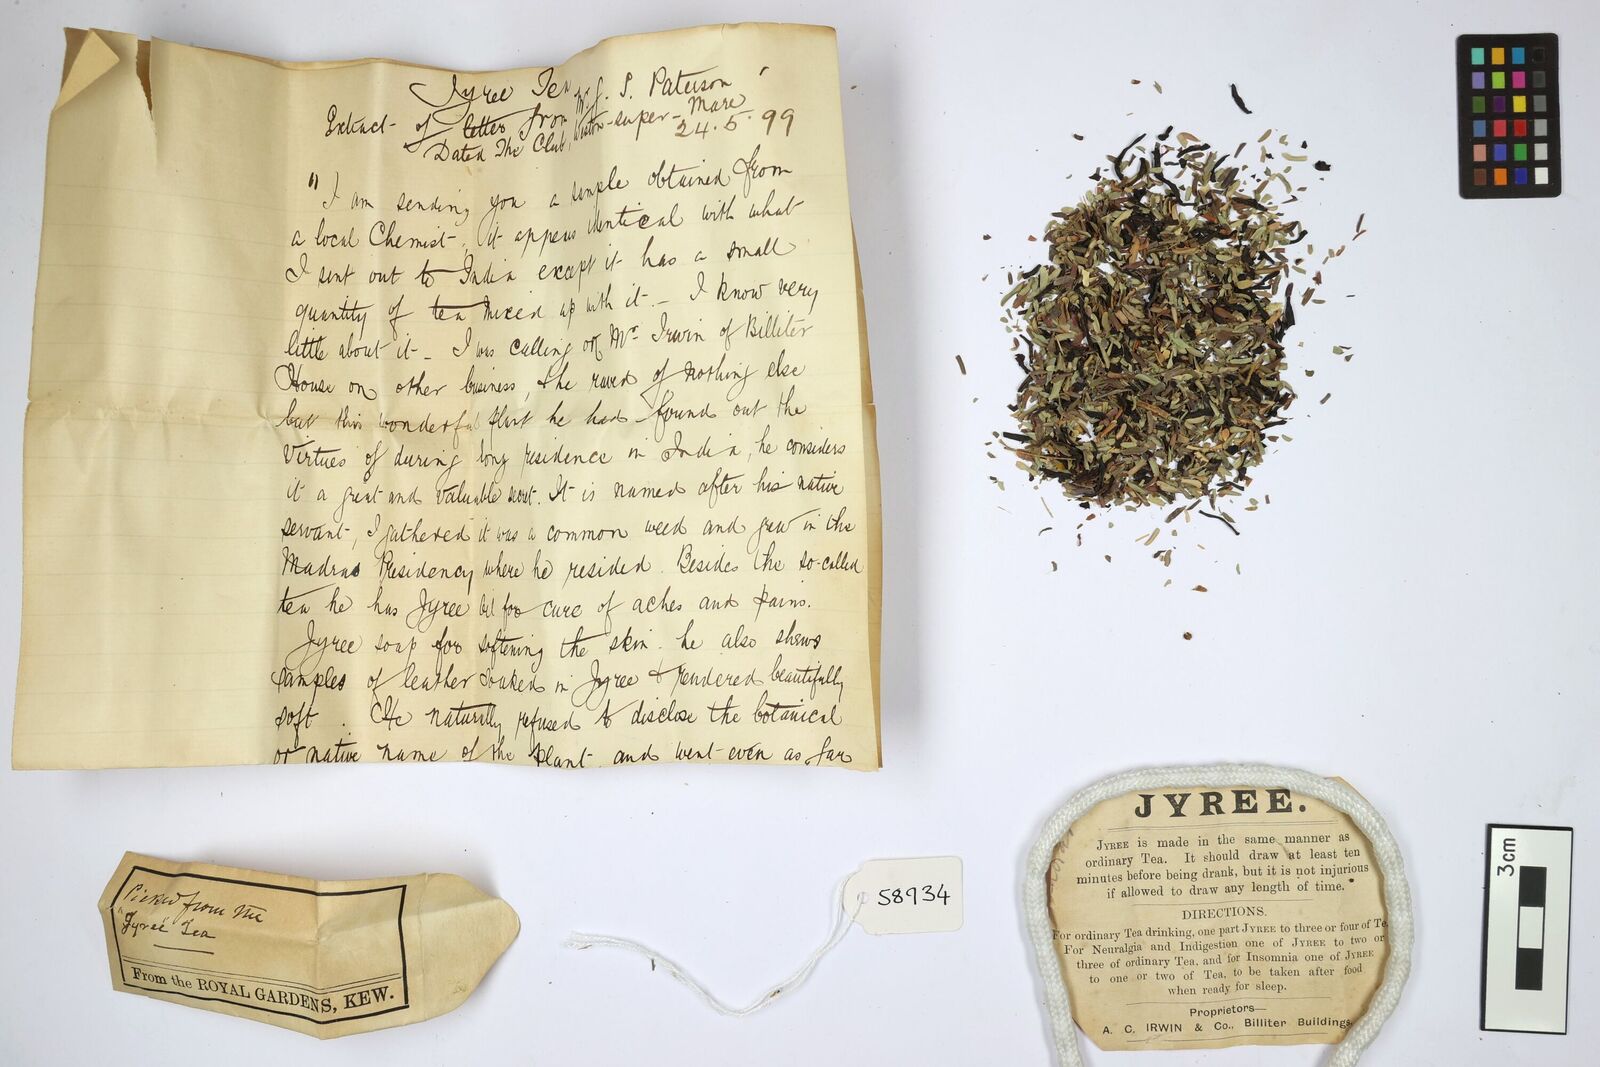 Jyree Tea
Extract of letter from Mr. J. S. Paterson
Dated The Club, Weston-super-Mare
24.5.99
"I am sending you a sample obtained from
a local Chemist, it appears identical with what
I sent out to India except it has a small
quantity of tea mixed up with it - I know very
little about it - I was calling on Mr Irwin of Billiter
House on other business, & he raved of nothing else
but this wonderful plant he had found out the
virtues of during long residence in India, he considers
it a great and valuable secret. It is named after his native
servant, I gathered it was a common weed and grew in the
Madras Presidency where he resided. Besides the so-called
tea he has Jyree oil for cure of aches and pains.
Jyree soap for softening the skin. he also shews
samples of leather soaked in Jyree & rendered beautifully
soft. He naturally refused to disclose the botanical
or native name of the plant and went even as far
Picked from the
"Jyree Tea
From the ROYAL GARDENS, KEW.
58934
JYREE.
JYREE is made in the same manner as
ordinary Tea. It should draw at least ten
minutes before being drank, but it is not injurious
if allowed to draw any length of time.
DIRECTIONS.
For ordinary Tea drinking, one part JYREE to three or four of Te
For Neuralgia and Indigestion one of JYREE to two or
three of ordinary Tea, and for Insomnia one of JYREE
to one or two of Tea, to be taken after food
when ready for sleep.
Proprietors—
A. C. IRWIN & Co., Billiter Buildings,
3cm